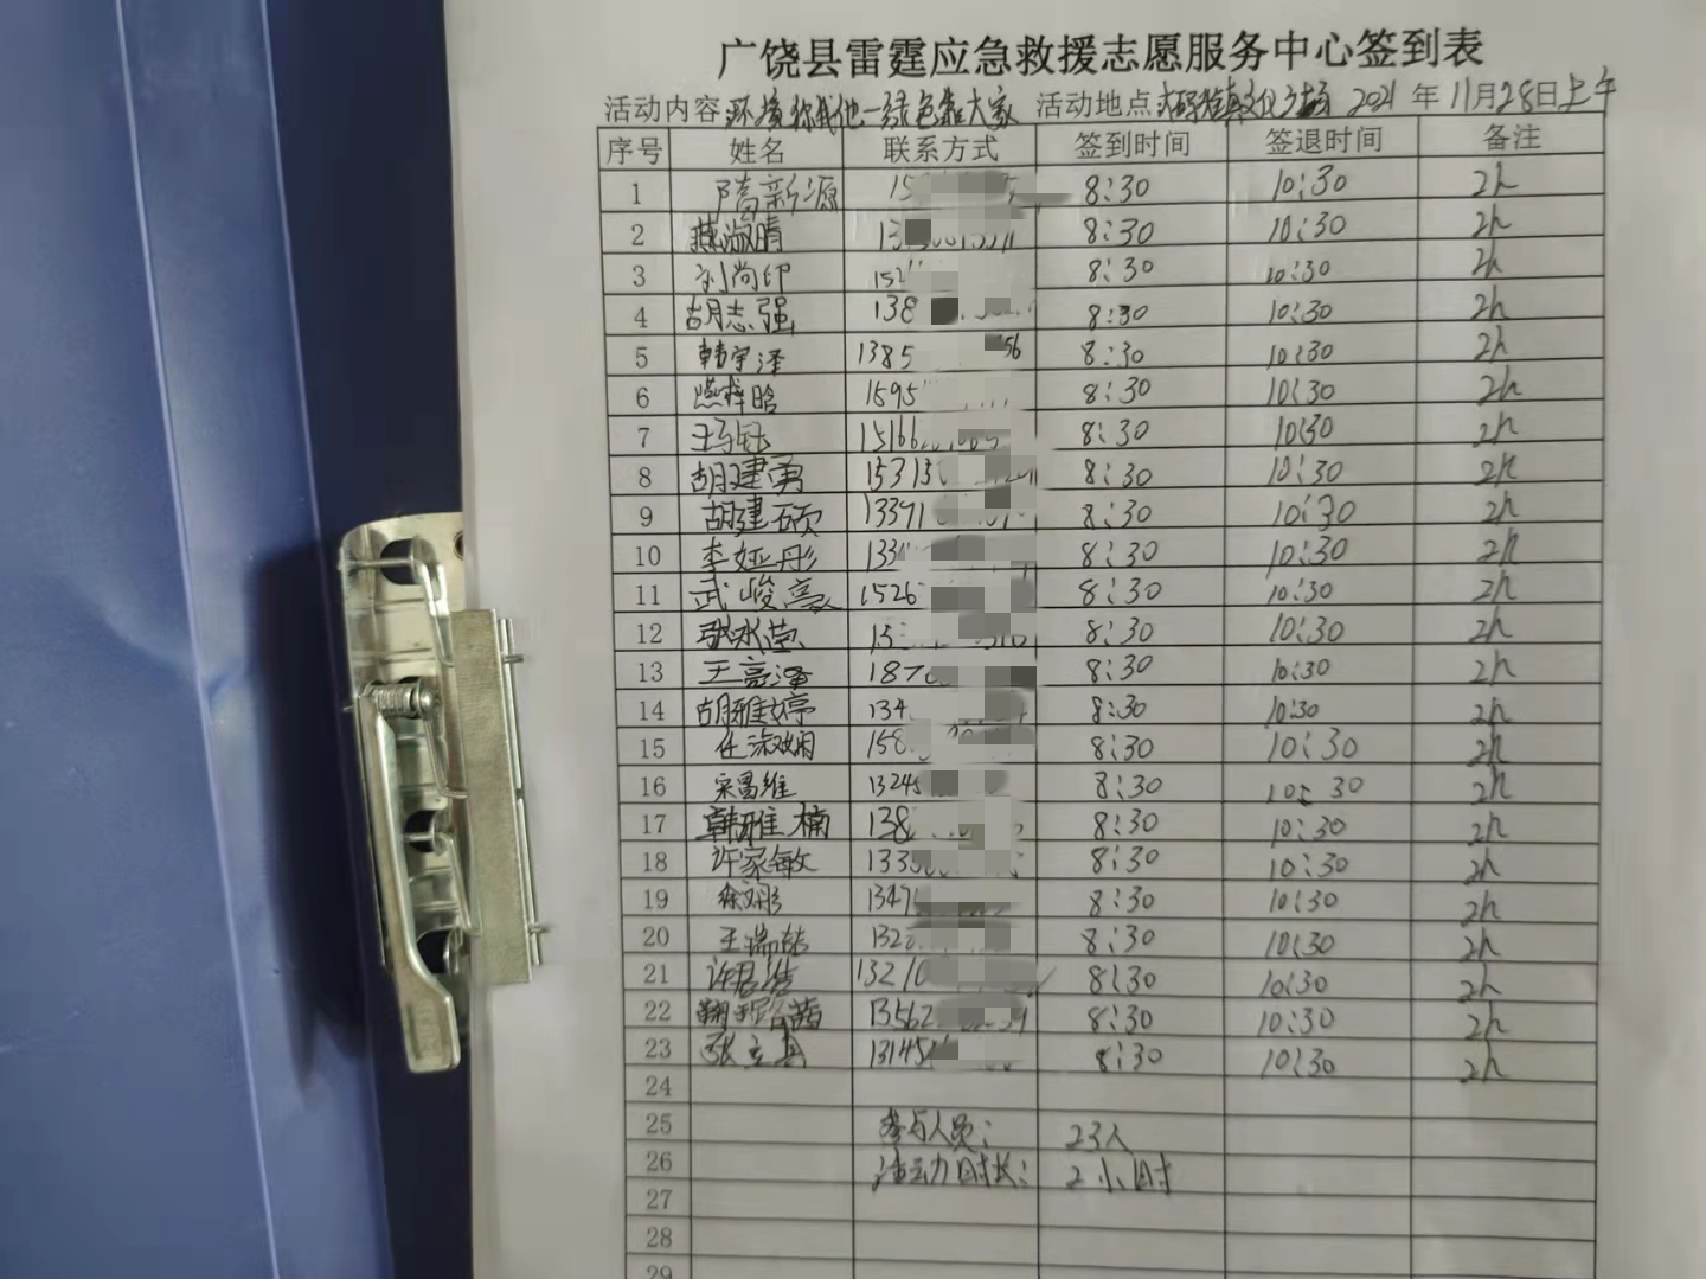 广饶县雷霆应急救援志愿服务中心签到表
活动内容 环境你我他一绿色靠大家 活动地点 大码头镇文化广场 2021 年 11月28日上午
序号 姓名 联系方式 签到时间 签退时间 备注
1 隋新源 15 8:30 10:30 2h
2 燕淑晴 13 8:30 10:30 2h
3 刘尚印 152 8:30 10:30 2h
4 胡志强 138 8:30 10:30 2h
5 韩宇泽 1385 56 8:30 10:30 2h
6 燕梓晗 1595 8:30 10:30 2h
7 15166 8:30 10:30 2h
8 胡建勇 15313 8:30 10:30 2h
9 胡建硕 13371 8:30 10:30 2h
10 李娅彤 133 8:30 10:30 2h
11 武峻豪 1526 8:30 10:30 2h
12 张冰莹 15 8:30 10:30 2h
13 王亮泽 187 8:30 10:30 2h
14 胡雅婷 134 8:30 10:30 2h
15 任淑娴 158 8:30 10:30 2h
16 宋昌维 13245 8:30 10:30 2h
17 韩雅楠 138 8:30 10:30 2h
18 许家敏 133 8:30 10:30 2h
19 徐文彤 1347 8:30 10:30 2h
20 132 8:30 10:30 2h
21 许君浩 13210 8:30 10:30 2h
22 13562 8:30 10:30 2h
23 13145 8:30 10:30 2h
24
25 参与人员: 23人
26 活动时长: 2小时
27
28
29